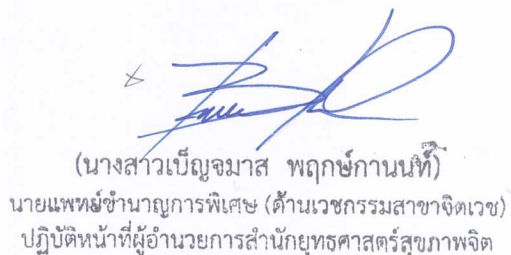 (นางสาวเบ็ญจมาส พฤกษ์กานนท์)
นายแพทย์ชำนาญการพิเศษ (ด้านเวชกรรมสาขาจิตเวช)
ปฏิบัติหน้าที่ผู้อำนวยการสำนักยุทธศาสตร์สุขภาพจิต